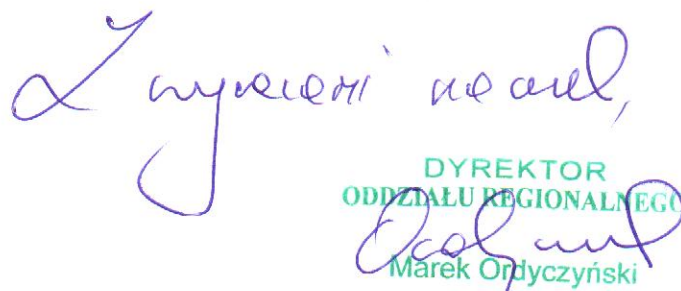 Z wyrazami
DYREKTOR
ODDZIAŁU REGIONALNEGO
Marek Ordyczyński